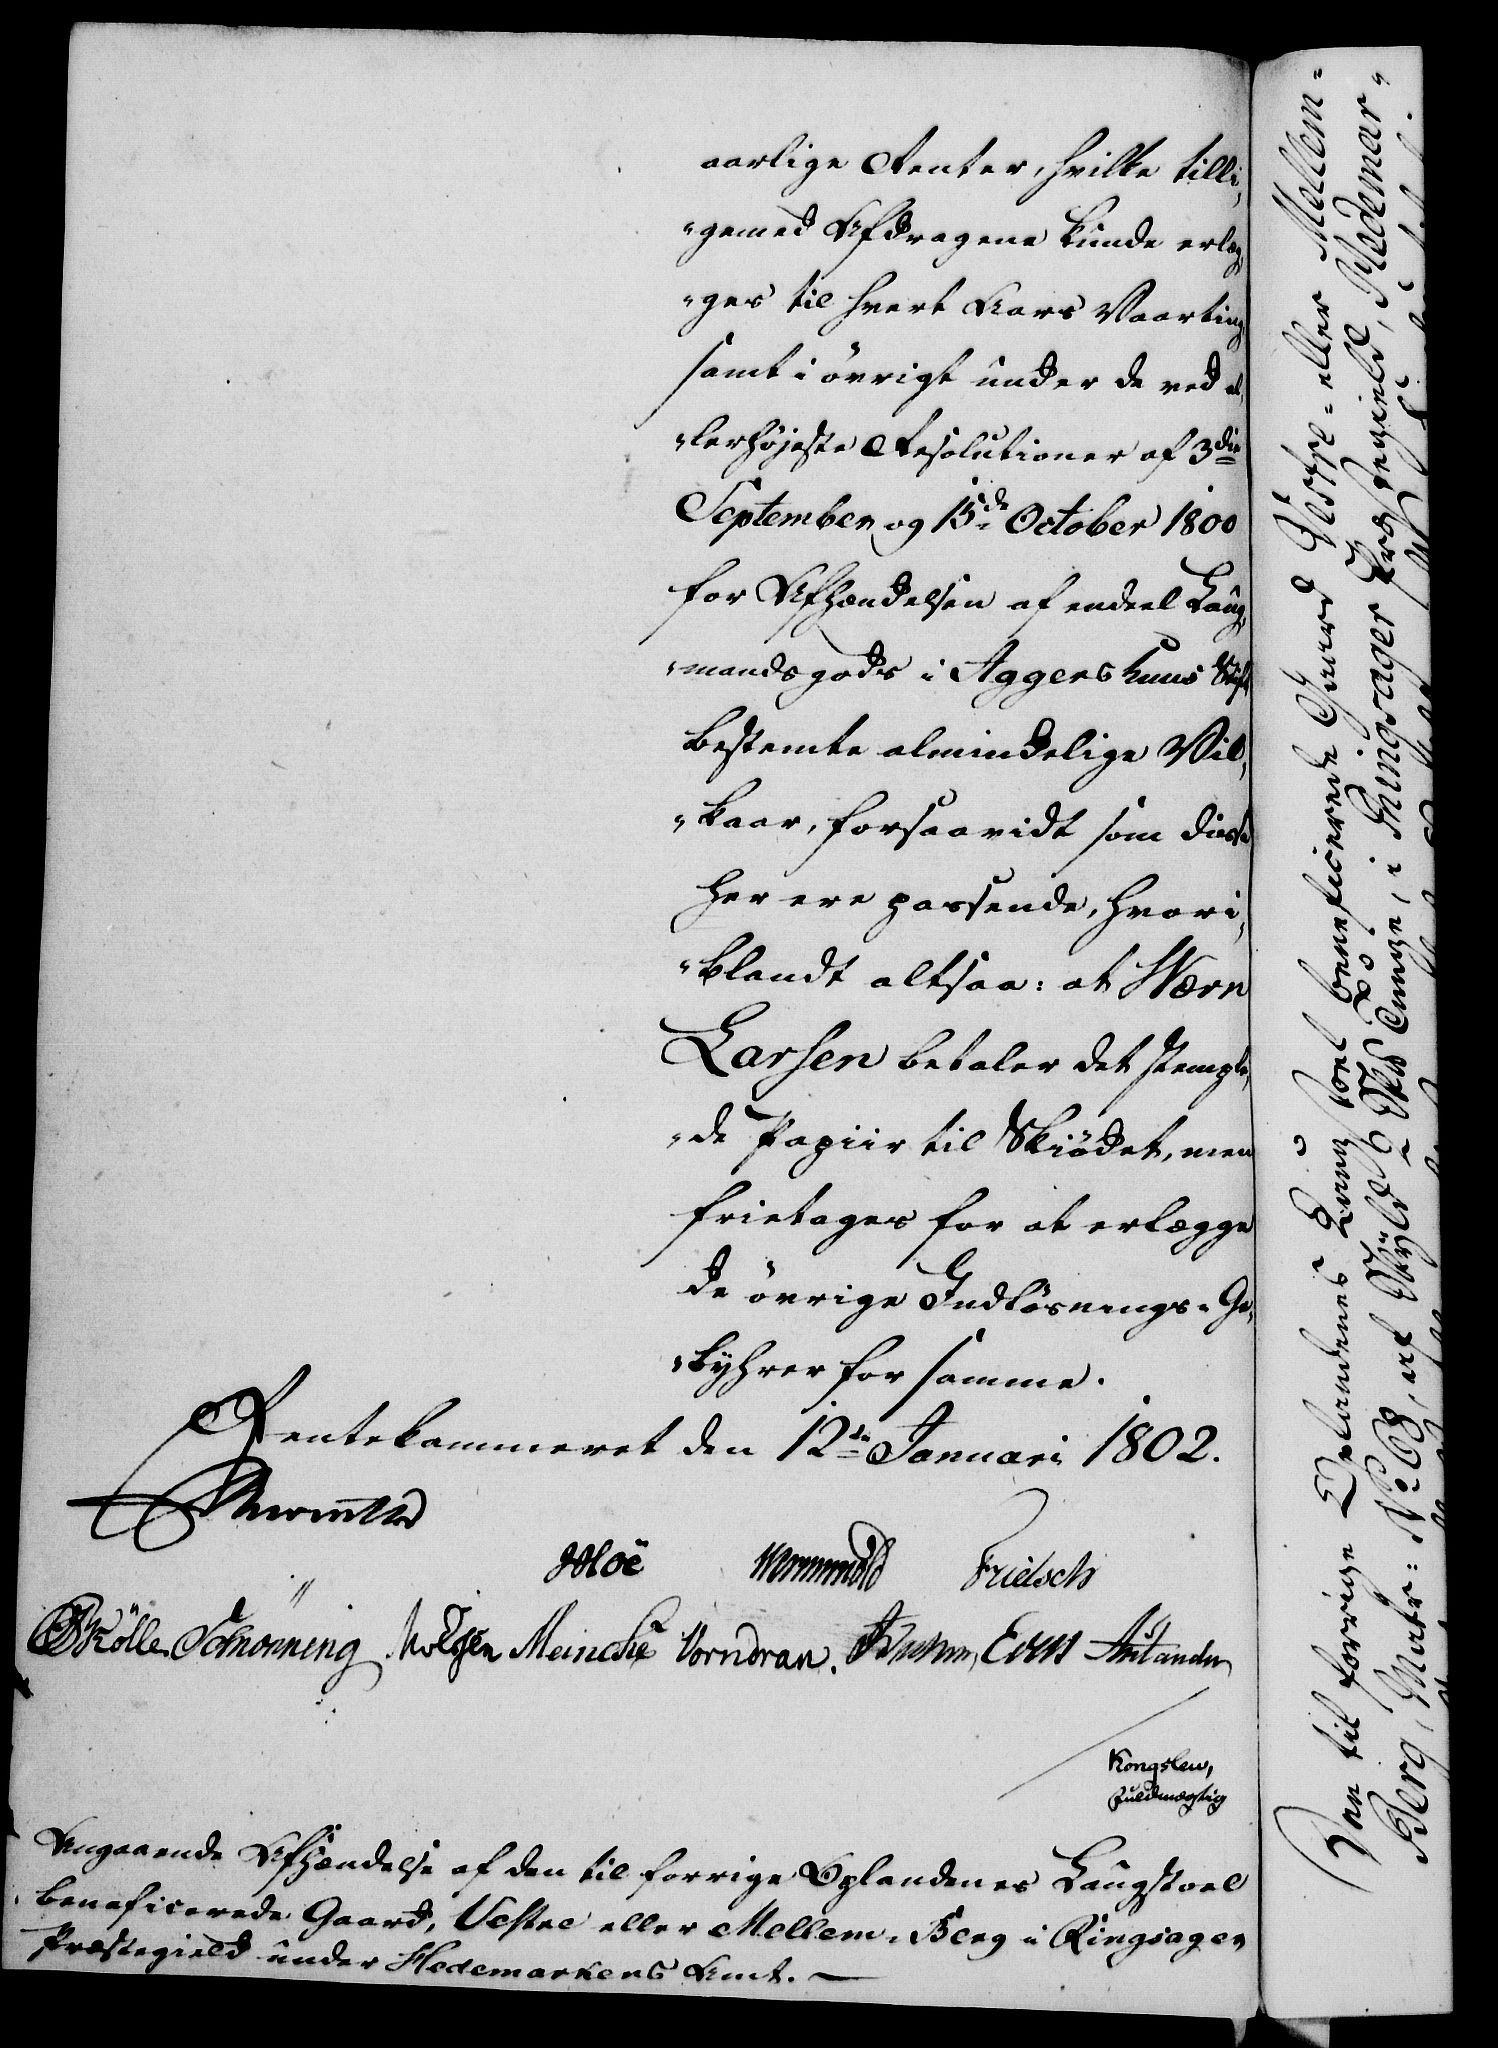 aarlige Renter, hvilke tilli-
-gemed Afdragene kunde erlæg-
-ges til hvert Aars Vaarting,
samt i øvrigt under de ved al-
-lerhøjeste Resolutioner af 3die
September og 15de October 1800
for Afhændelsen af endeel Laug-
-mandsgods i Aggershuus Stift
bestemte almindelige Vil-
-kaar, forsaavidt som disse
her ere passende, hvori-
-blandt altsaa: at Hærn
Larsen betaler det stemple-
-de Papiir til Skiödet, men
frietages for at erlægge
de övrige Indlösnings-Ge-
-byhrer for samme.
Rentekammeret den 12te Januari 1802.
Hoë Wormskiold Frielsch
Kölle Schönning Meincke Vorndran. Knuhm, Evers
Kongslew,
Fuldmægtig
Angaaende Afhændelse af den til forrige Oplandenes Laugstoel
beneficerede Gaard, Vestre eller Mellem-Berg i Ringsager
Præstegield under Hedemarkens Amt. —
Den til forrige Oplandenes Laugstoel beneficerede Gaard Vestre- eller Mellem-
Berg, Matr: No 68, af Skyld 6 Skd Tunge, i Ringsager Præstegield, Hedemar-